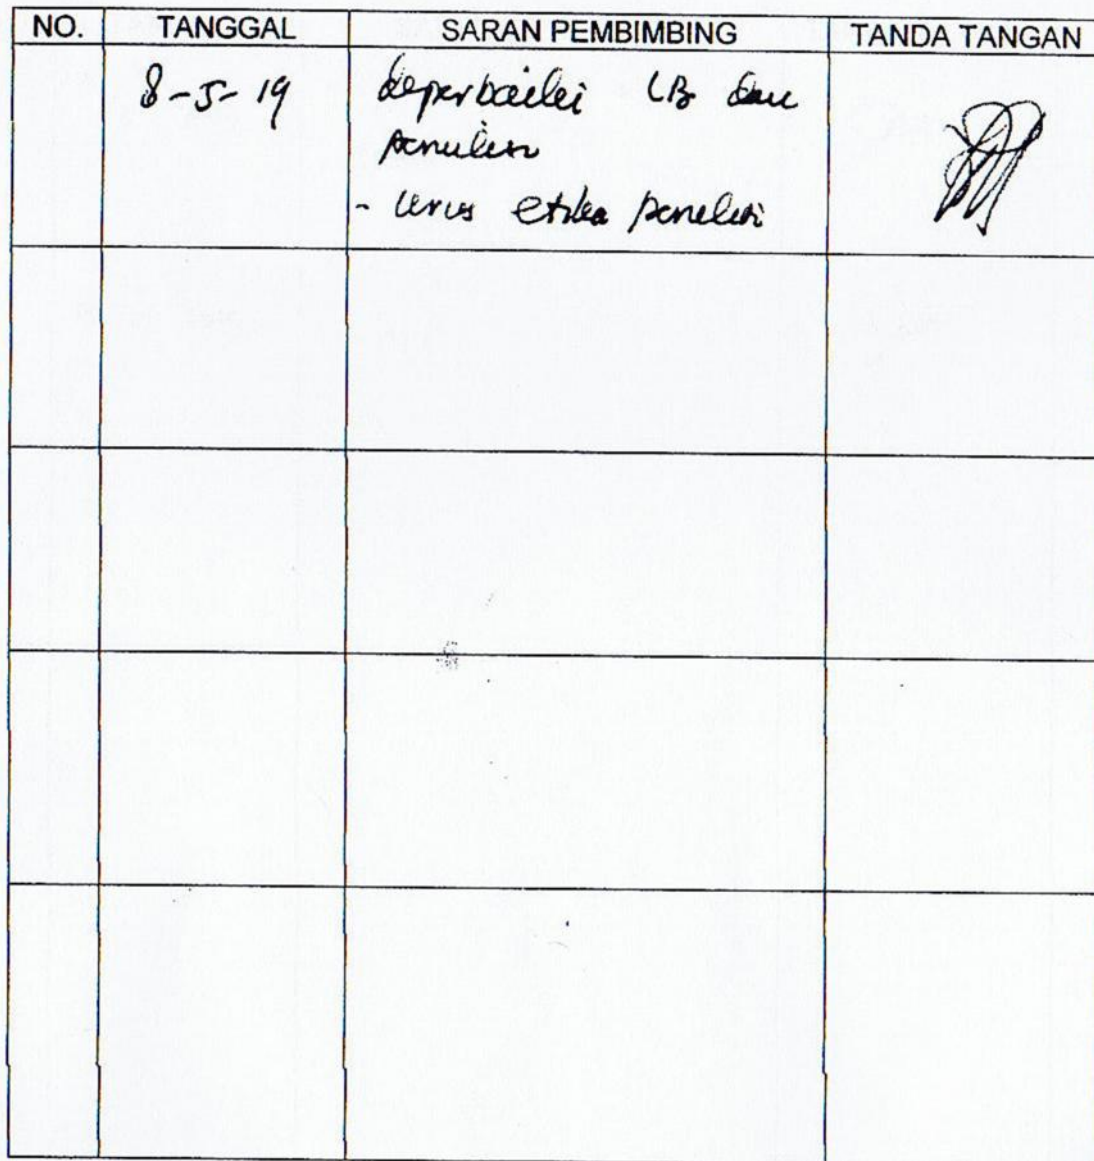 NO. TANGGAL SARAN PEMBIMBING TANDA TANGAN
8-5-19 diperbaiki LB dan
penulisan
- Urus etika penelitian